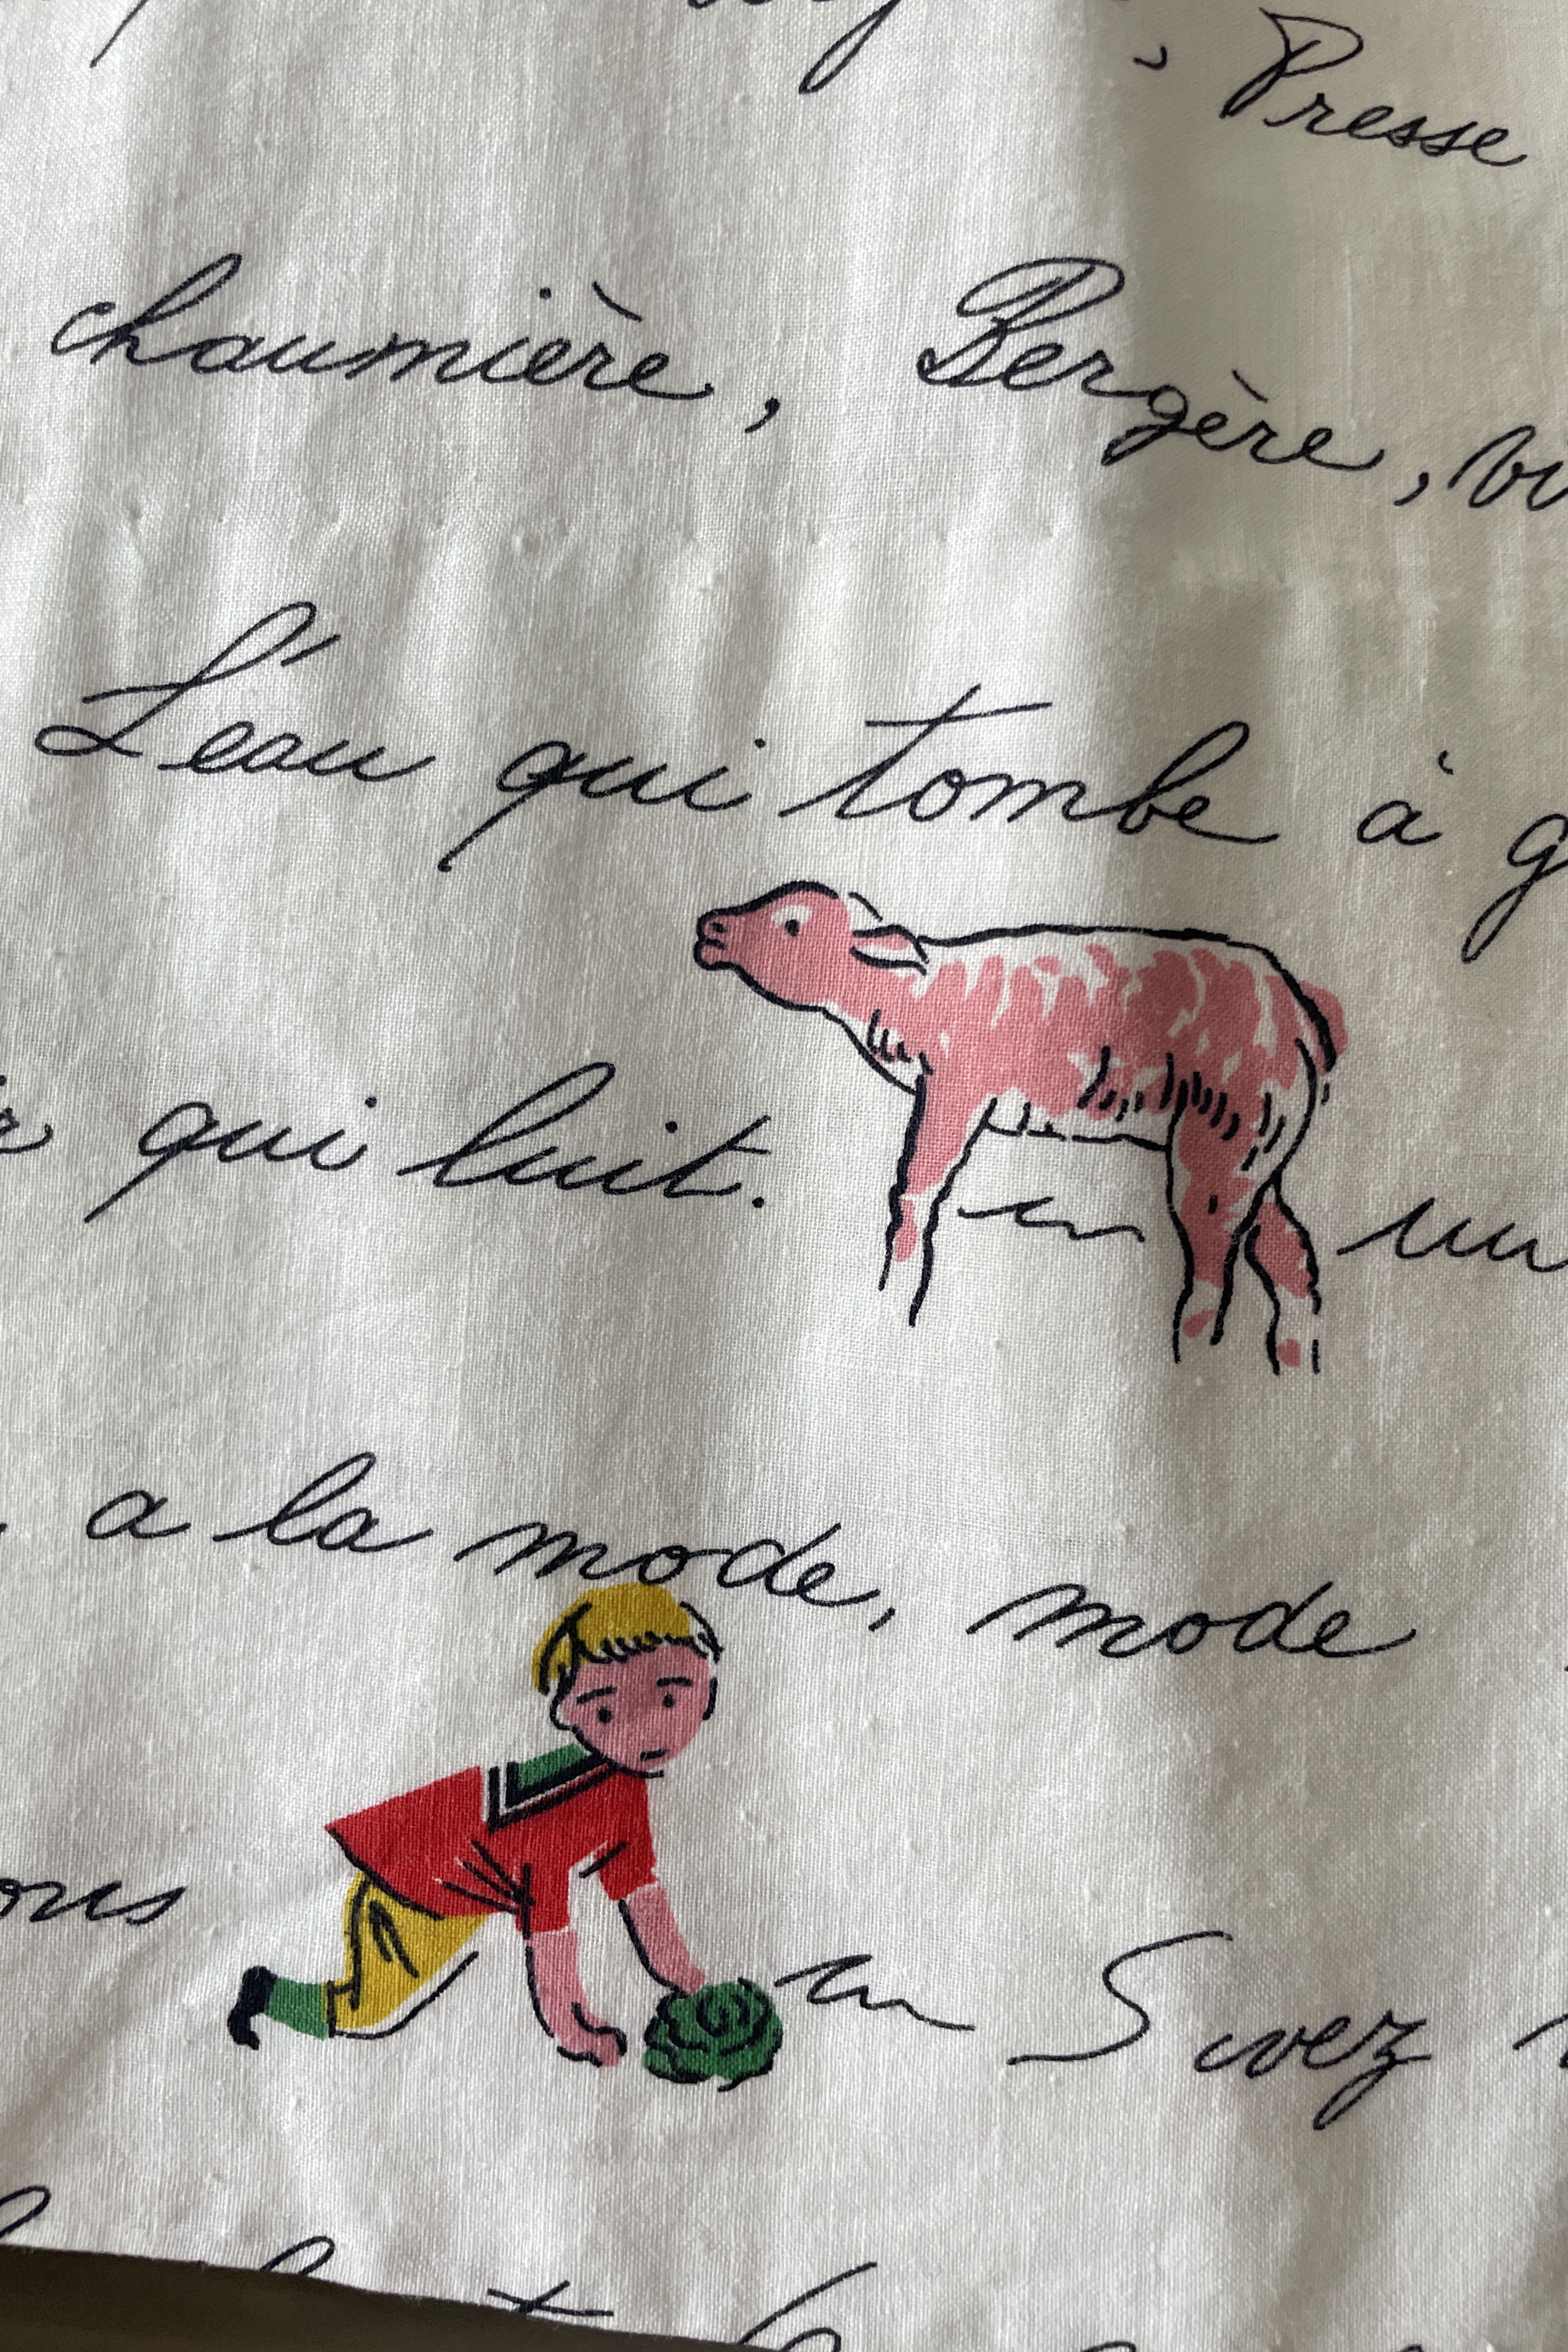 , Presse
chaumière, Bergère,
L'eau qui tombe à
qui luit. un
a la mode, mode
Suvez